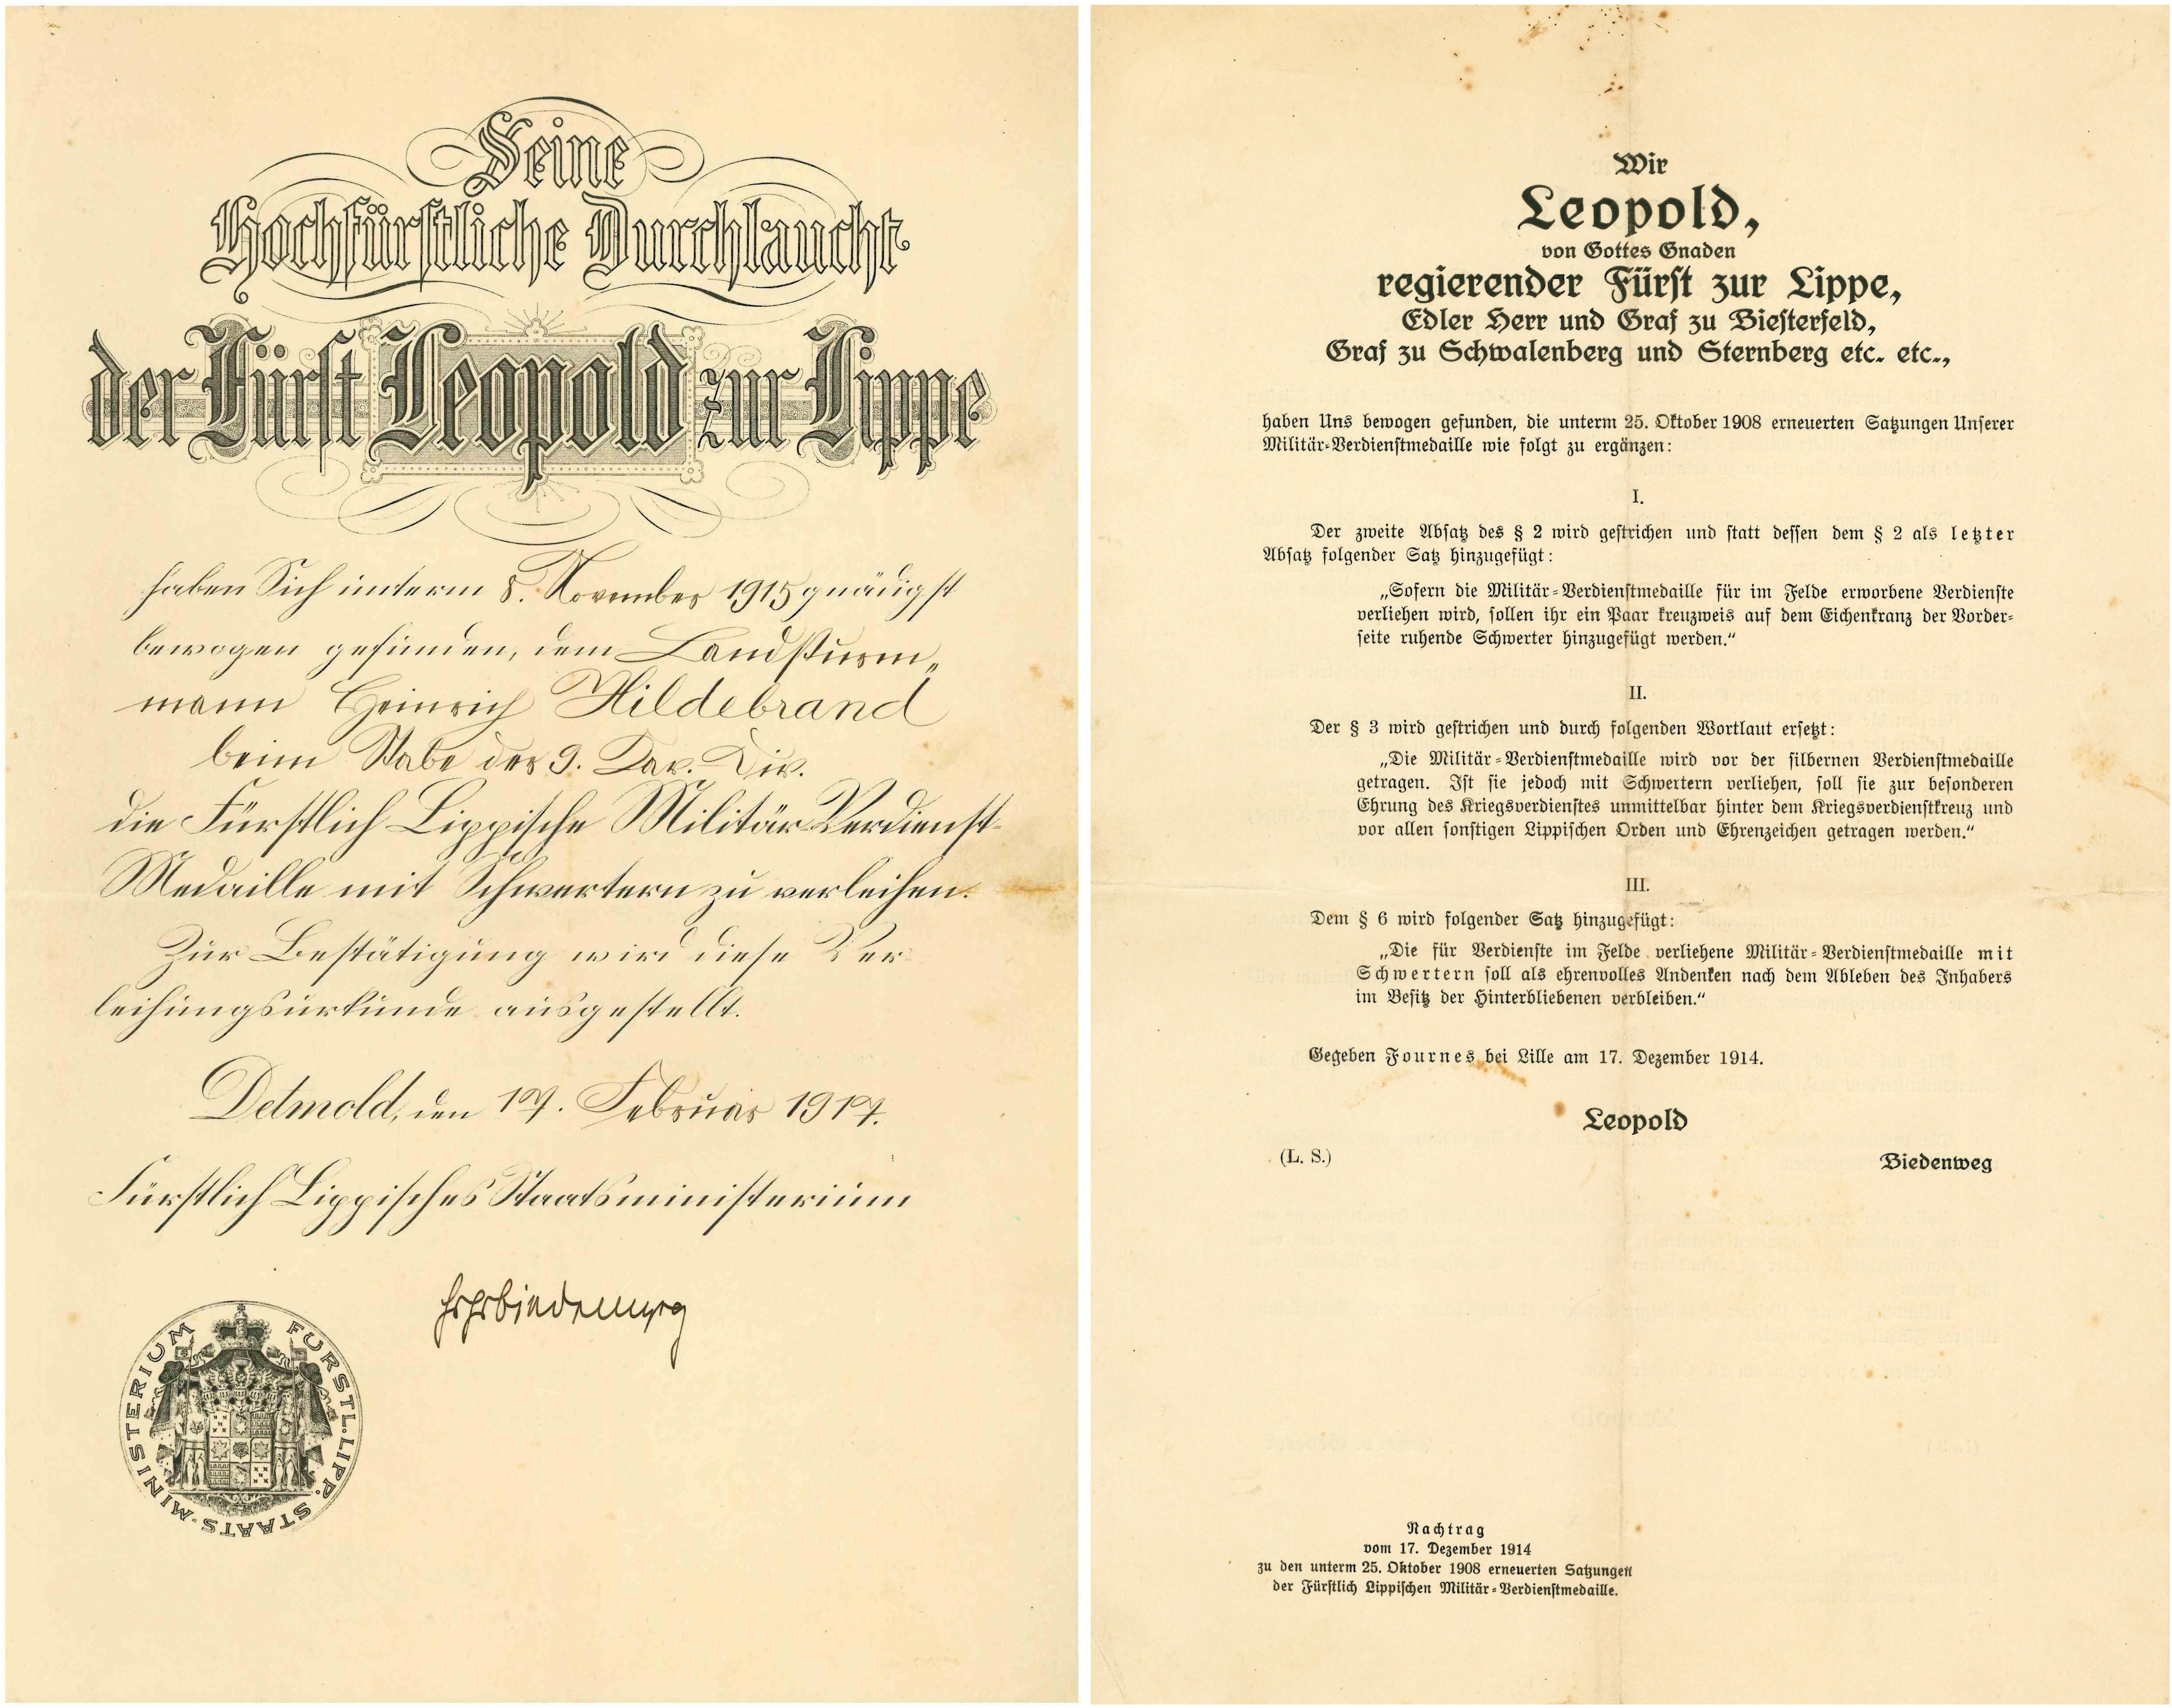 Seine
Hochfürstliche Durchlaucht
der Fürst Leopold zur Lippe
haben Sich unterm 8. November 1915 gnädigst
bewogen gefunden, dem Landsturm„
mann Heinrich Hildebrand
beim Stabe der 9. Kav. Div.
die Fürstlich Lippische Militär Verdienst-
Medaille mit Schwertern zu verleihen.
Zur Bestätigung wird diese Ver
leihungsurkunde ausgestellt.
Detmold, den 17. Februar 1917.
Fürstlich Lippisches Staatsministerium
FÜRSTL. LIPP. STAATS-MINISTERIUM
Wir
Leopold,
von Gottes Gnaden
regierender Fürst zur Lippe,
Edler Herr und Graf zu Biesterfeld,
Graf zu Schwalenberg und Sternberg etc. etc.,
haben Uns bewogen gefunden, die unterm 25. Oktober 1908 erneuerten Satzungen Unserer
Militär-Verdienstmedaille wie folgt zu ergänzen:
I.
Der zweite Absatz des § 2 wird gestrichen und statt dessen dem § 2 als letzter
Absatz folgender Satz hinzugefügt:
„Sofern die Militär-Verdienstmedaille für im Felde erworbene Verdienste
verliehen wird, sollen ihr ein Paar kreuzweis auf dem Eichenkranz der Vorder-
seite ruhende Schwerter hinzugefügt werden.“
II.
Der § 3 wird gestrichen und durch folgenden Wortlaut ersetzt:
„Die Militär-Verdienstmedaille wird vor der silbernen Verdienstmedaille
getragen. Ist sie jedoch mit Schwertern verliehen, soll sie zur besonderen
Ehrung des Kriegsverdienstes unmittelbar hinter dem Kriegsverdienstkreuz und
vor allen sonstigen Lippischen Orden und Ehrenzeichen getragen werden.“
III.
Dem § 6 wird folgender Satz hinzugefügt:
„Die für Verdienste im Felde verliehene Militär-Verdienstmedaille mit
Schwertern soll als ehrenvolles Andenken nach dem Ableben des Inhabers
im Besitz der Hinterbliebenen verbleiben.“
Gegeben Fournes bei Lille am 17. Dezember 1914.
Leopold
(L. S.)
Biedenweg
Nachtrag
vom 17. Dezember 1914
zu den unterm 25. Oktober 1908 erneuerten Satzungen
der Fürstlich Lippischen Militär-Verdienstmedaille.